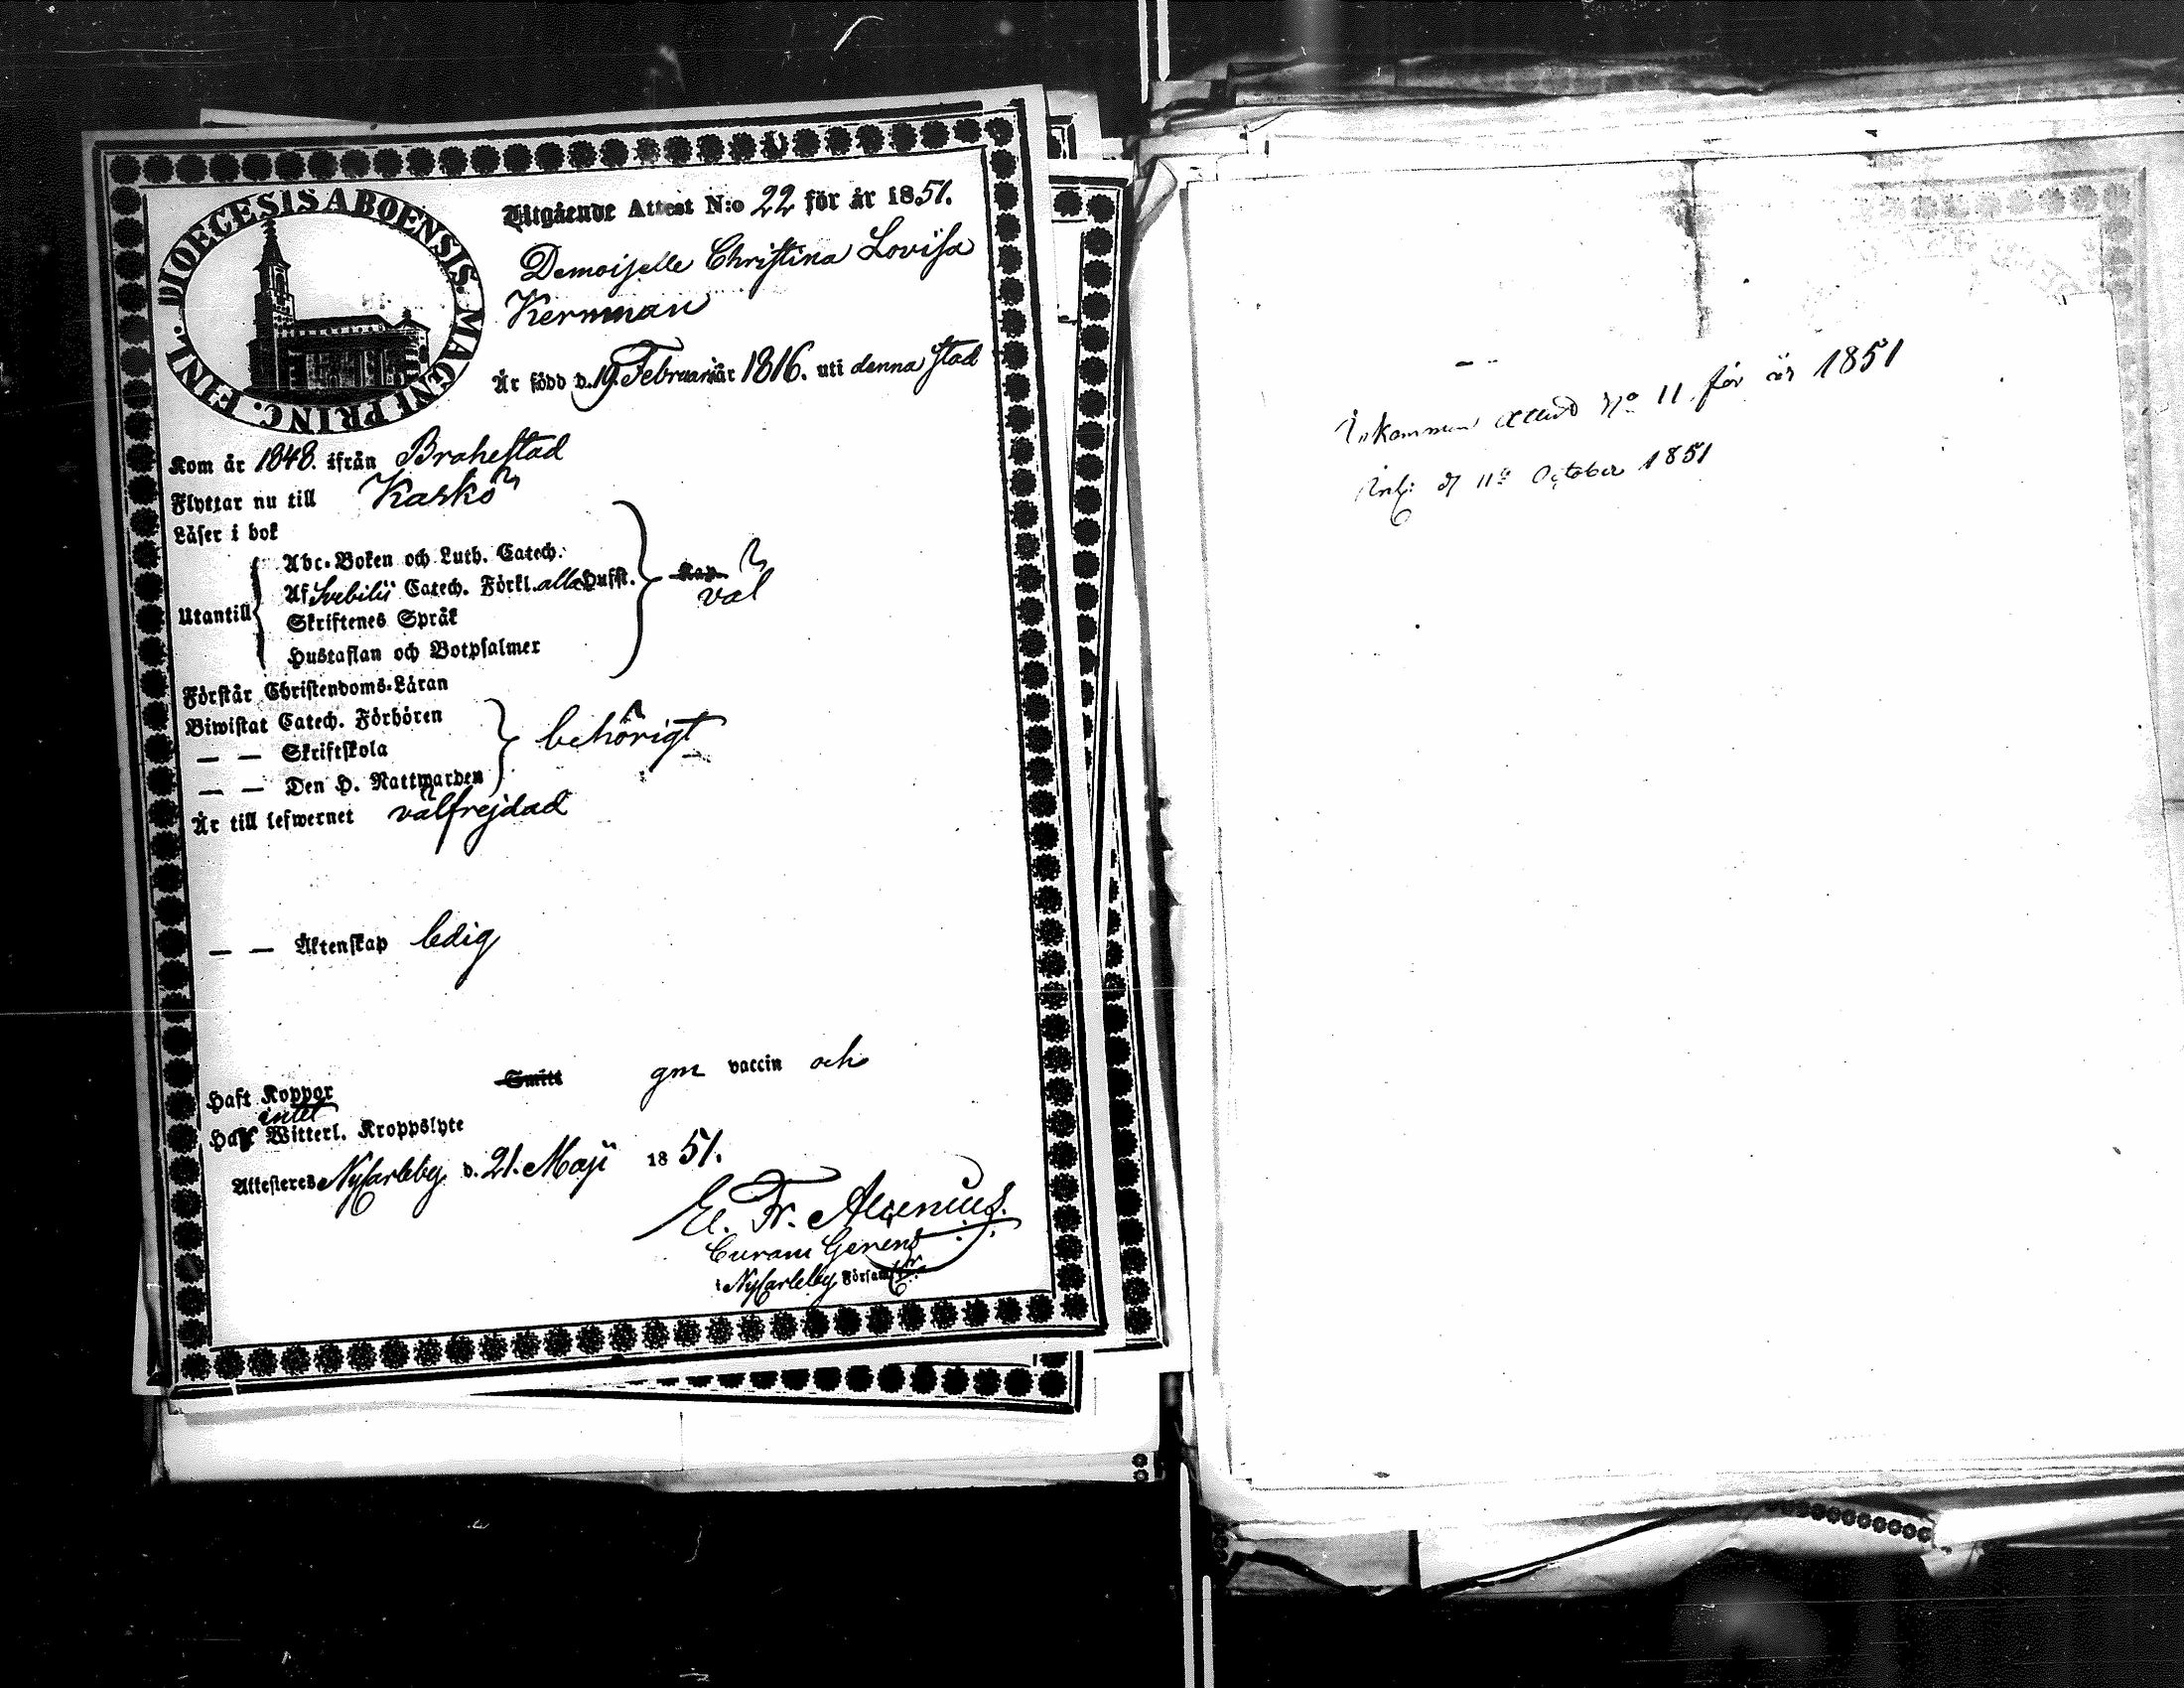 DIOECESIS ABOENSIS. MAGNI PRINC. FINL.
Utgående Attest N:o 22 för år 1851.
Demoiselle Christina Lovisa
Kernman
Är född d. 19 Februari år 1816. uti denna stad
Kom år 1848. ifrån Brahestad
Flyttar nu till Kaskö
Läser i bok
Utantill
Abc-Boken och Luth. Catech.
Af Svebilii Catech. Förkl. alla Hufst.
val
Skriftenes Språk
Hustaflan och Botpsalmer
Förstår Christendoms-Läran
Biwistat Catech. Förhören
behörigt
— — Skriftskola
— — Den H. Nattwarden
Är till lefwernet välfrejdad
— — Äktenskap ledig
Haft Koppor Smitt gm vaccin och
intet
Haft Witterl. Kroppslyte
Attesteres Nycarleby d. 21. Maji 1851.
Curam Gerens
i Nycarleby Försam
Inkommen attest No 11 för år 1851
d 11 October 1851